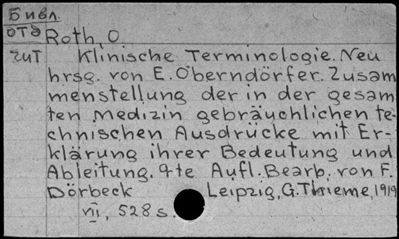 Библ.
отд
чит
Roth, O.
Klinische Terminologie. Neu
hrsg. von E. Oberndörfer. Zusam
menstellung der in der gesam
ten Medizin gebräuchlichen te-
chnischen Ausdrücke mit Er-
klärung ihrer Bedeutung und
Ableitung. 9te Aufl. Bearb. von F.
Dörbeck Leipzig, G. Thieme, 1919
VII, 528 s.